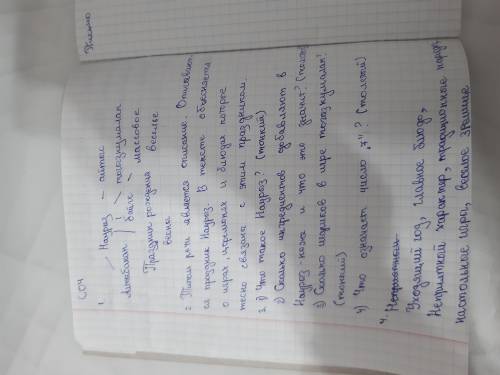 СОЧ
1. Наурыз – айтыс
Алтыбакан / байге – тогызкумалак
массовое
Праздник рождения веселье
весна
2. Типом речи является описание. Описывается
праздник Наурыз. В тексте объясняется
о играх, церемониях и блюдах которое
тесно связана с этим праздником.
3. 1) Что такое Наурыз? (тонкий)
2) Сколько ингредиентов добавляют в
Наурыз-кожа и что это значит?
3) Сколько шариков в игре тогызкумалак?
(тонкий)
4) Что означает число "7"? (толстый)
4. Уходящий год, главное блюдо,
Неприятной характер, традиционные
настольные игра, весёлое зрелище